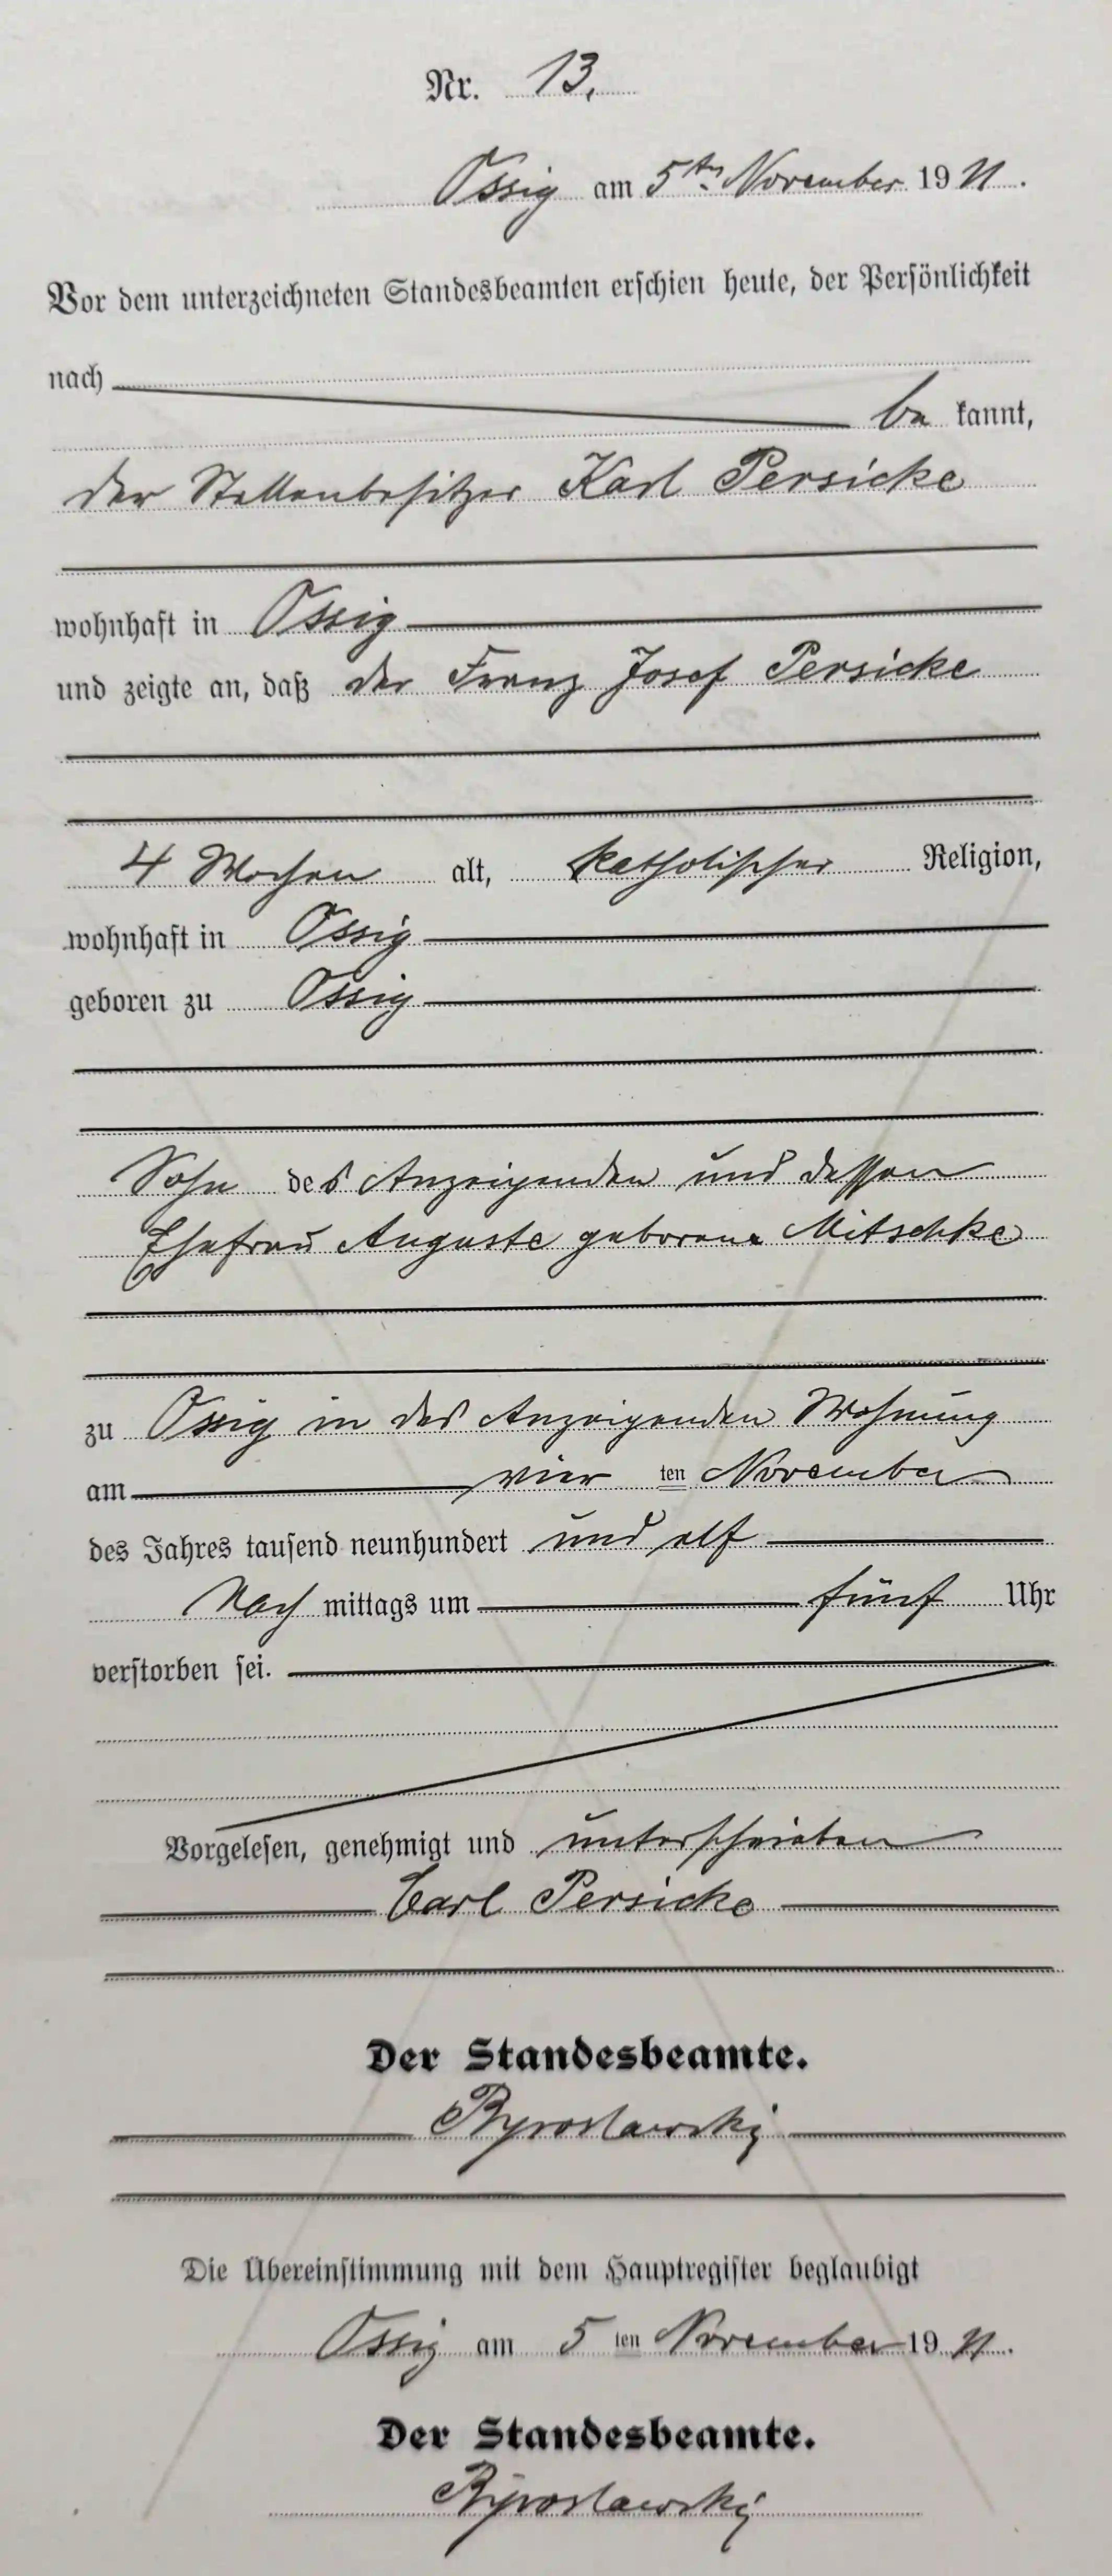 Nr. 13.
Ossig am 5ten November 1911.
Vor dem unterzeichneten Standesbeamten erschien heute, der Persönlichkeit
nach
be kannt,
der Stellenbesitzer Karl Persicke
wohnhaft in Ossig
und zeigte an, daß der Franz Josef Persicke
4 Wochen alt, katholischer Religion,
wohnhaft in Ossig
geboren zu Ossig
Sohn des Anzeigenden und dessen
Ehefrau Auguste geborene Mitschke
zu Ossig in des Anzeigenden Wohnung
am vier ten November
des Jahres tausend neunhundert und elf
Nach mittags um fünf Uhr
verstorben sei.
Vorgelesen, genehmigt und unterschrieben
Carl Persicke
Der Standesbeamte.
Die Übereinstimmung mit dem Hauptregister beglaubigt
Ossig am 5 ten November 1911.
Der Standesbeamte.